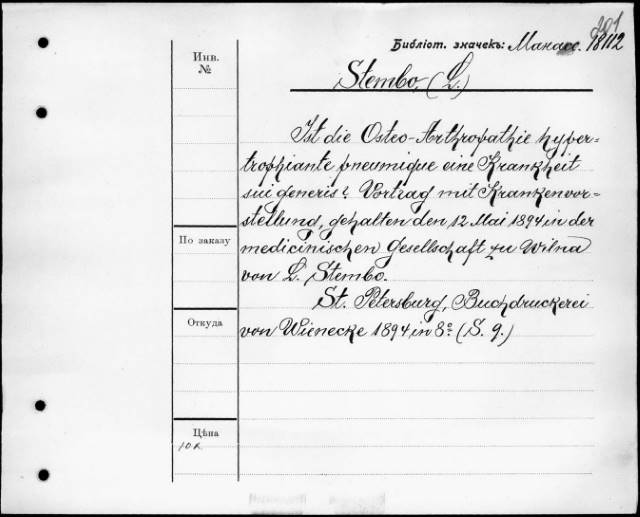 201
Библіот. значекъ: Манасс. 18112
Инв.
№
Stembo, (L.)
Ist die Osteo-Arthropathie hyper=
trophiante pneumique eine Krankheit
sui generis? Vortrag mit Krankenvor=
stellung, gehalten den 12 Mai 1894 in der
По заказу
medicinischen Gesellschaft zu Wilna
von L. Stembo.
St. Petersburg, Buchdruckerei
Откуда
von Wienecke 1894 in 8º. (S. 9.)
Цѣна
10 к.